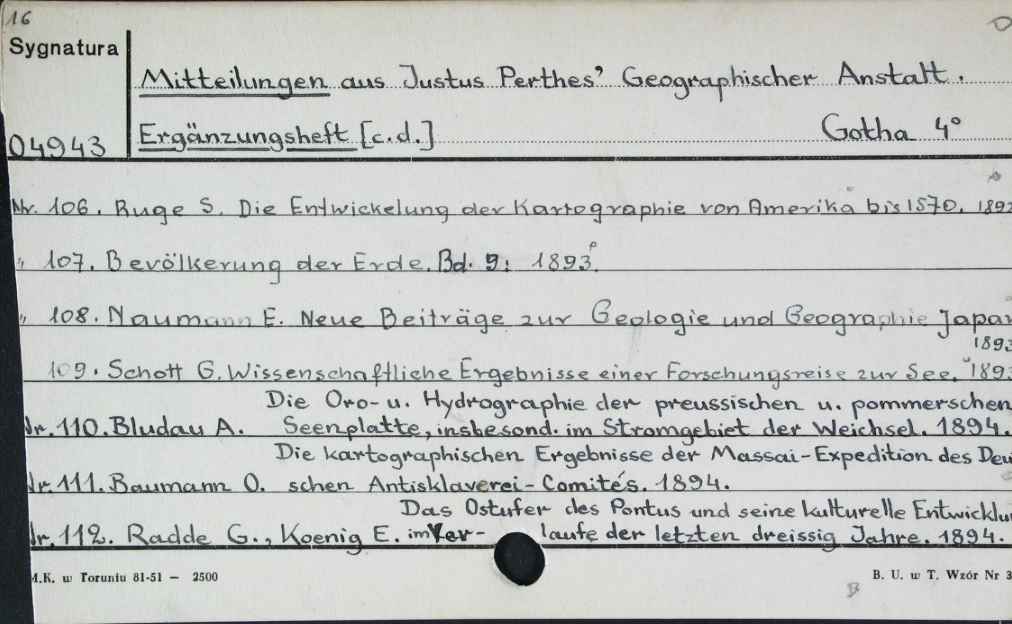 16
Sygnatura
Mitteilungen aus Justus Perthes' Geographischer Anstalt.
04943
Ergänzungsheft [c.d.] Gotha 4°
Nr. 106. Ruge S. Die Entwickelung der Kartographie von Amerika bis 1570. 1892
" 107. Bevölkerung der Erde. Bd. 9: 1893.
" 108. Naumann E. Neue Beiträge zur Geologie und Geographie Japan
1893
109. Schott G. Wissenschaftliche Ergebnisse einer Forschungsreise zur See. 1893
Die Oro- u. Hydrographie der preussischen u. pommerschen
Nr. 110. Bludau A. Seenplatte, insbesond. im Stromgebiet der Weichsel. 1894.
Die kartographischen Ergebnisse der Massai-Expedition des Deu
Nr. 111. Baumann O. schen Antisklaverei-Comités. 1894.
Das Ostufer des Pontus und seine kulturelle Entwicklu
Nr. 112. Radde G., Koenig E. im Ver- laufe der letzten dreissig Jahre. 1894.
M.K. w Toruniu 81-51 — 2500
B. U. w T. Wzór Nr 3